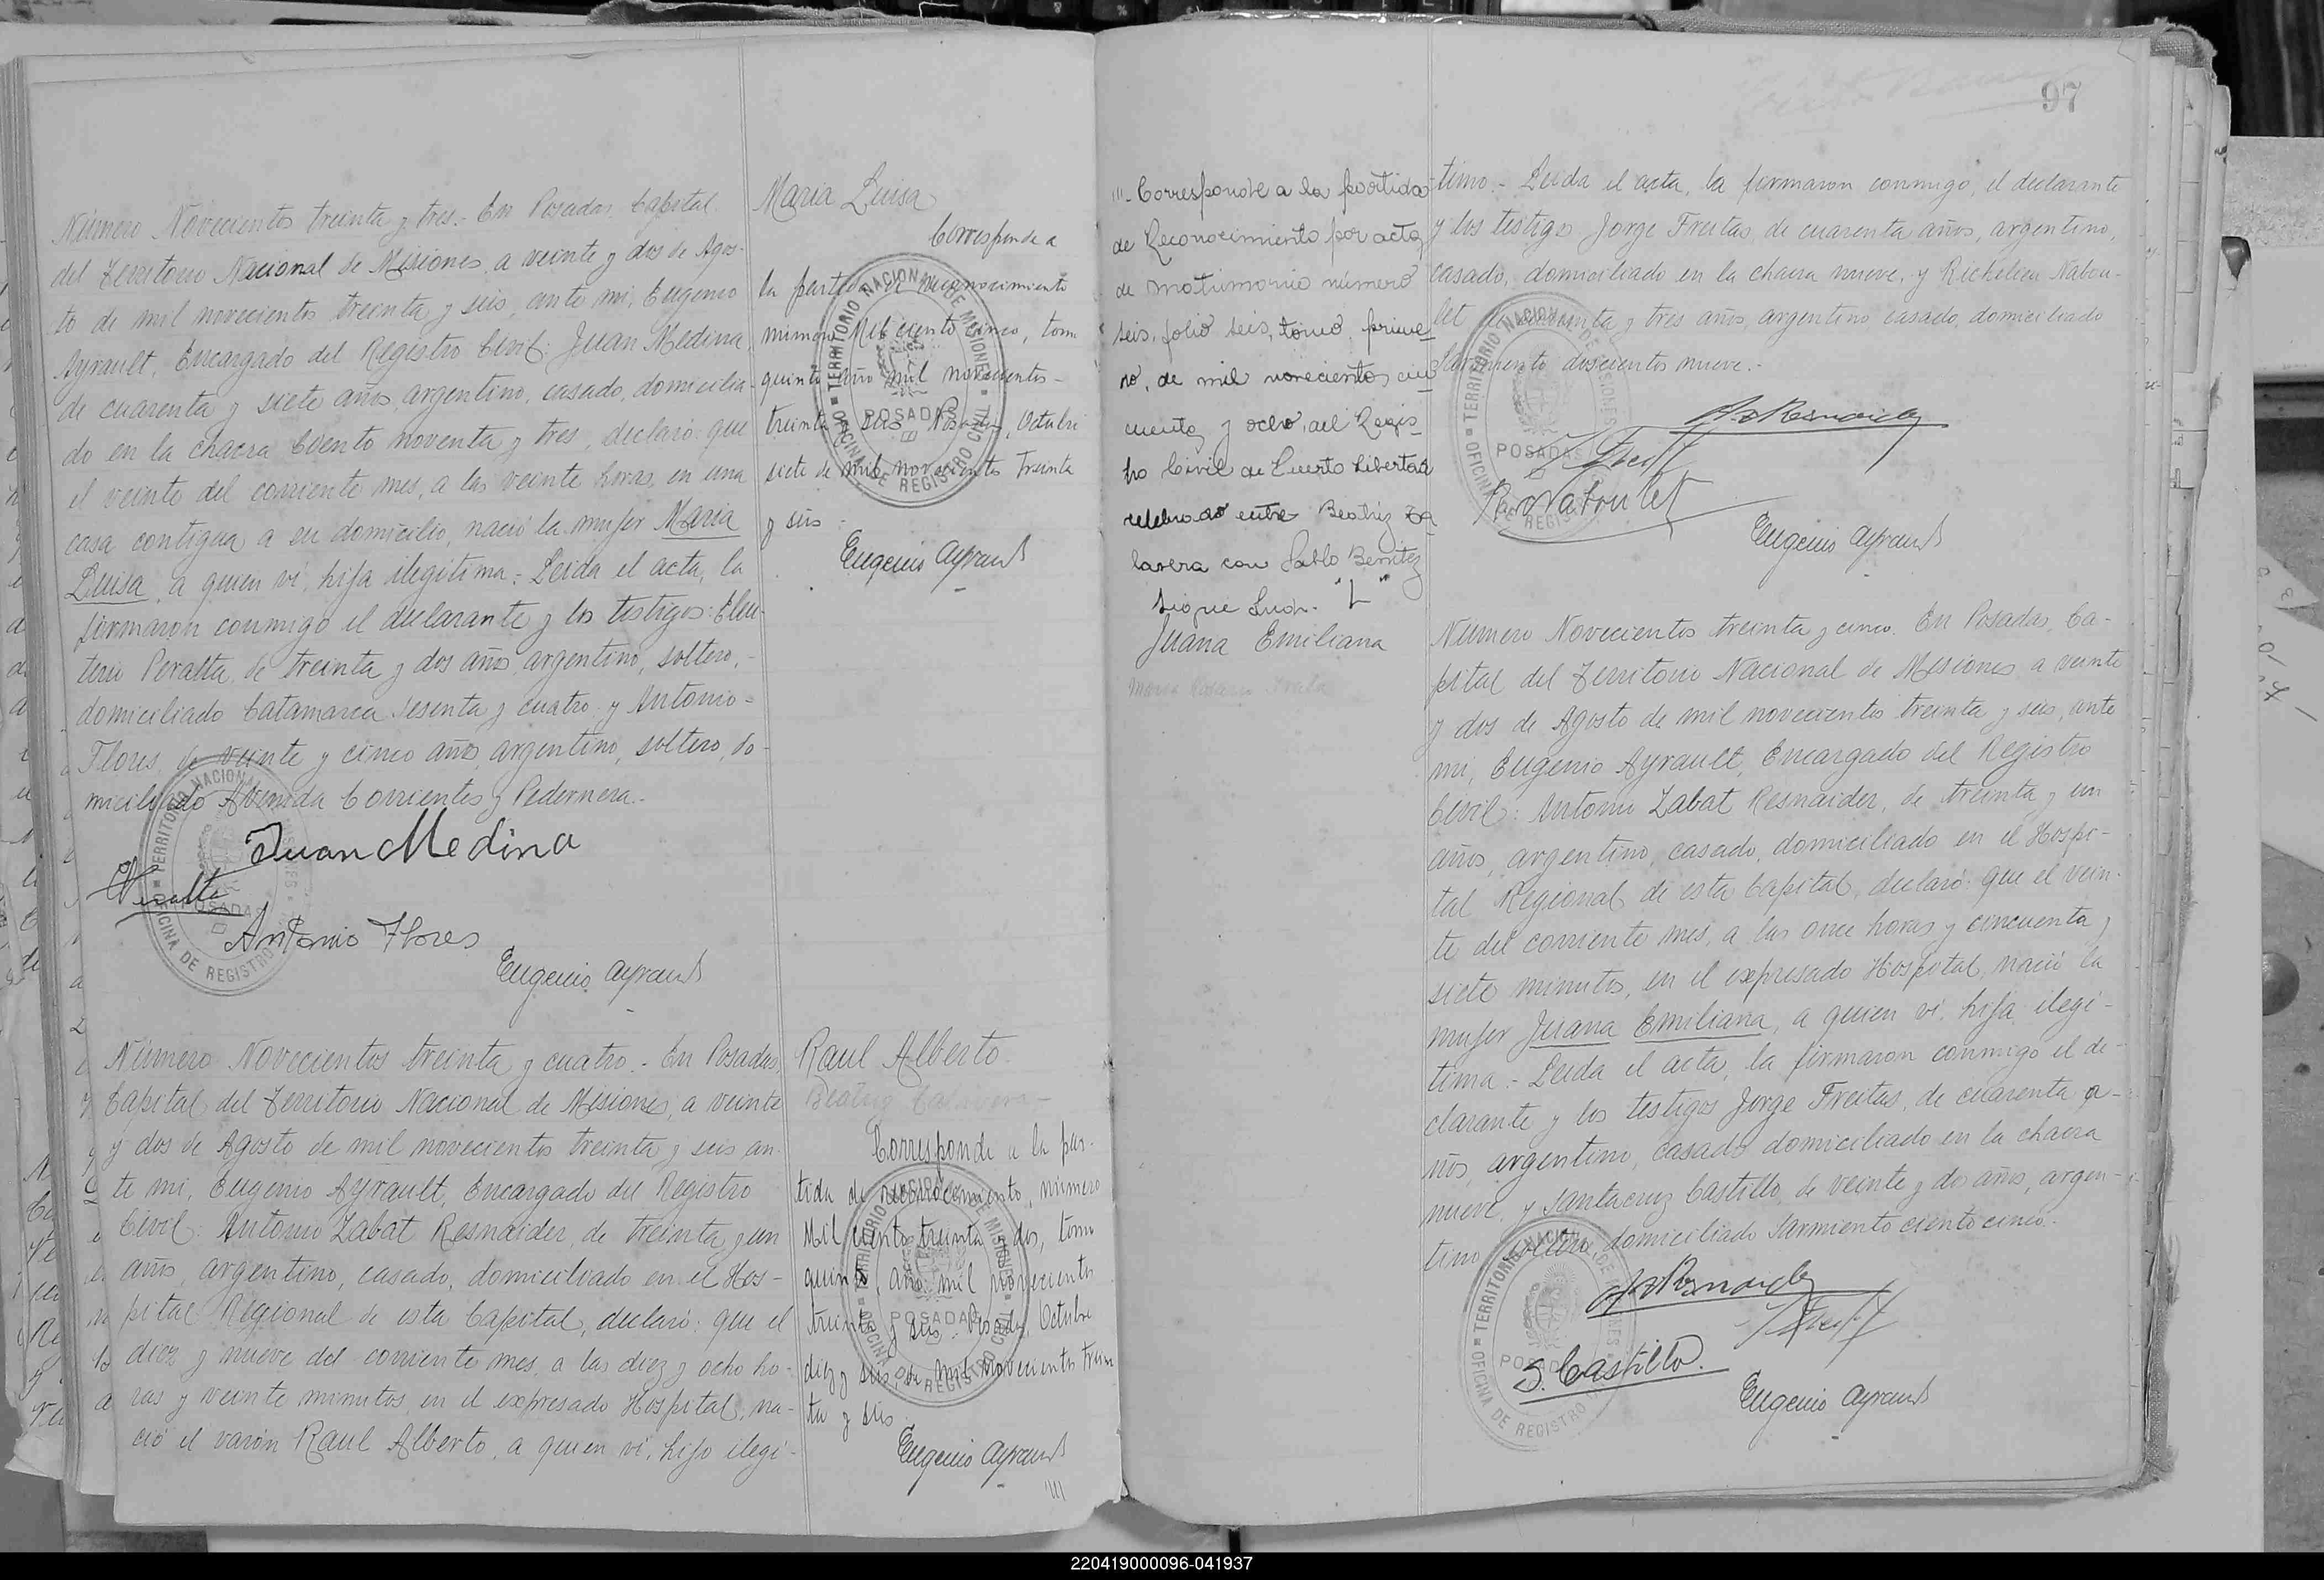 Número Novecientos treinta y tres.- En Posadas, Capital
del Territorio Nacional de Misiones, a veinte y dos de Agos-
to de mil novecientos treinta y seis, ante mi, Eugenio
Ayrault, Encargado del Registro Civil: Juan Medina,
de cuarenta y siete años, argentino, casado, domicilia-
do en la chacra Ciento noventa y tres, declaró: que
el veinte del corriente mes, a las veinte horas, en una
casa contigua a su domicilio, nació la mujer Maria
Luisa, a quien ví, hija ilegitima.- Leida el acta, la
firmaron conmigo el declarante y los testigos: Eleu-
terio Peralta, de treinta y dos años, argentino, soltero,-
domiciliado Catamarca sesenta y cuatro y Antonio-
Flores, de veinte y cinco años, argentino, soltero, do-
miciliado Avenida Corrientes y Pedernera.-
Juan Medina
EPeralta
Antonio Flores
Eugenio Ayrault
Maria Luisa
Corresponde a
la partida de reconocimiento
número Mil ciento cinco, tomo
quinto año mil novecientos-
treinta y seis. Posadas, Octubre
siete de mil novecientos treinta
y seis.
Eugenio Ayrault
Número Novecientos treinta y cuatro.- En Posadas,
Capital del Territorio Nacional de Misiones, a veinte
y dos de Agosto de mil novecientos treinta y seis, an-
te mi, Eugenio Ayrault, Encargado del Registro
Civil: Antonio Zabat Resnaider, de treinta y un
años, argentino, casado, domiciliado en el Hos-
pital Regional de esta Capital, declaró: que el
diez y nueve del corriente mes, a las diez y ocho ho-
ras y veinte minutos, en el expresado Hospital, na-
ció el varón Raul Alberto, a quien ví, hijo ilegi-
Raul Alberto.
Beatriz Talavera-
Corresponde a la par-
tida de reconocimiento, número
Mil ciento treinta y dos, tomo
quinto, año mil novecientos
treinta y seis.- Posadas, Octubre
diez y seis, de mil novecientos trein
ta y seis
Eugenio Ayrault
111
97
111- Corresponde a la partida
de Reconocimiento por acta
de matrimonio número
seis, folio seis, tomo, prime
ro, de mil novecientos cin
cuenta y ocho, del Regis
tro Civil de Puerto Libertad
celebrado entre Beatriz Ta
lavera con Pablo Benitez
Sigue Lugr. "L"
timo.- Leida el acta, la firmaron conmigo, el declarante
y los testigos Jorge Freitas, de cuarenta años, argentino,
casado, domiciliado en la chacra nueve, y Richelieu Nabou-
let, de treinta y tres años, argentino casado, domiciliado
Sarmiento doscientos nueve.-
AZResnaider
JFreitas
R. Naboulet
Eugenio Ayrault
Juana Emiliana
Maria Rosario
Número Novecientos treinta y cinco. En Posadas, Ca-
pital del Territorio Nacional de Misiones a veinte
y dos de Agosto de mil novecientos treinta y seis, ante
mi, Eugenio Ayrault, Encargado del Registro
Civil: Antonio Zabat Resnaider, de treinta y un
años, argentino, casado, domiciliado en el Hospi-
tal Regional de esta Capital, declaró: que el vein-
te del corriente mes, a las once horas y cincuenta y
siete minutos, en el expresado Hospital, nació la
mujer Juana Emiliana, a quien ví, hija ilegi-
tima.- Leida el acta, la firmaron conmigo el de-
clarante y los testigos Jorge Freitas, de cuarenta a-
ños, argentino, casado domiciliado en la chacra
nueve, y Santacruz Castillo, de veinte y dos años, argen-
tino, soltero, domiciliado Sarmiento ciento cinco.-
AZResnaider
JFreitas
S. Castillo.
Eugenio Ayrault
TERRITORIO NACIONAL DE MISIONES
POSADAS
OFICINA DE REGISTRO CIVIL
220419000096-041937